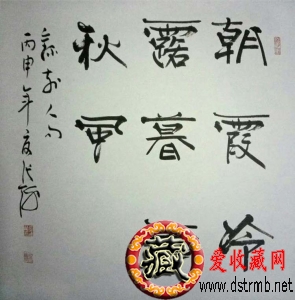 朝霞冷
露暮
秋風
前人句
丙申年夏
藏
爱收藏网
www.dstrmb.net